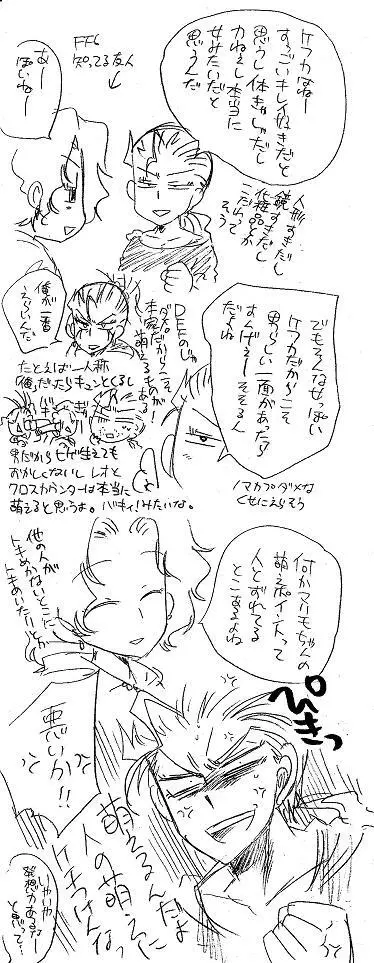 ケフカはねー
すっごいキレイ好きだと
思うし 体きゃしゃだし
力ねえし本当に
女みたいだと
思うんだ
FF6
知ってる友人
↓
あー
ぽいねー
人形すきだし
鏡すきだし
化粧品とか
こだわって
そう
でもそんな女っぽい
ケフカだからこそ
男らしい一面があったら
すんげぇーそそるん
だよね
ノマカプダメな
くせにえらそう
DFFのじゃ
ダメ。
本家だからこそ
萌えるものが
ある!
俺が一番
えらいんだ。
たとえば一人称
俺だったらキュンとくるし
男だからヒゲ生えても
おかしくないし レオと
クロスカウンターは本当に
萌えると思うよ。バキィ!みたいな。
何かマリモちゃんの
萌えポイントって
人とずれてる
とこあるよね
他の人が
トキめかないとこに
トキめいたりとか
ぴきっ
悪いか!!
萌えるんだよ
人の萌えに
ケチつけんなっ
いやいや
発想力あるなー
と思って…